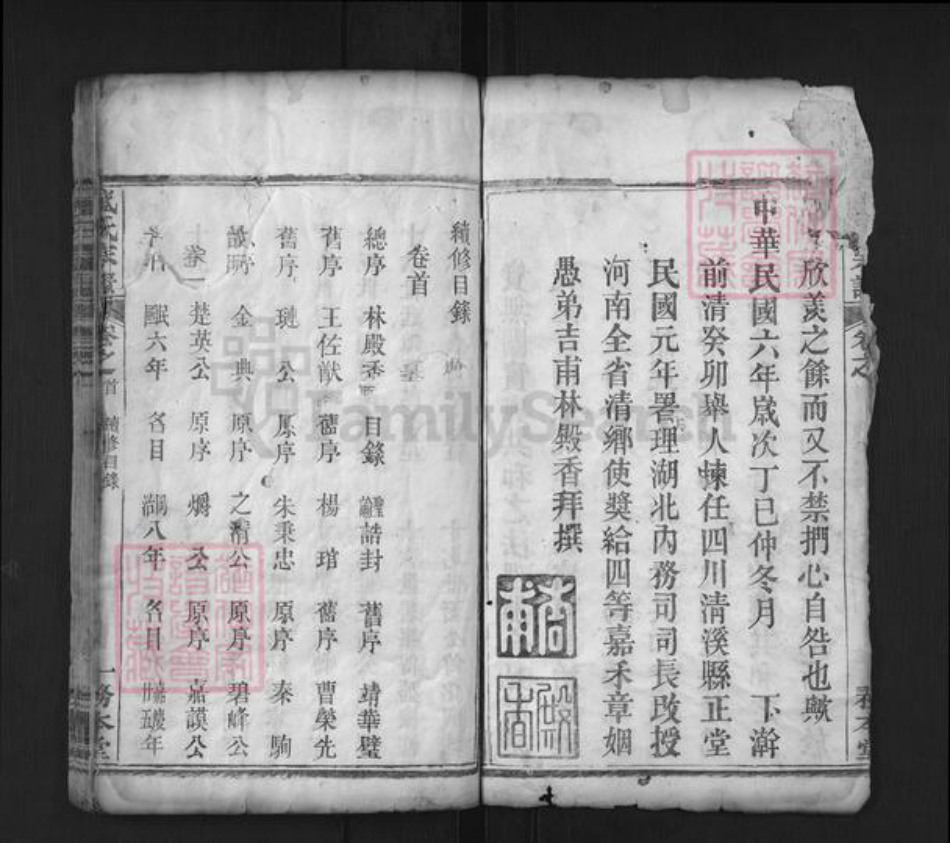 欣羨之餘而又不禁捫心自咎也歟
中華民國六年歲次丁巳仲冬月 下澣
前清癸卯舉人揀任四川清溪縣正堂
民國元年署理湖北內務司司長改授
河南全省清鄉使獎給四等嘉禾章姻
愚弟吉甫林殿香拜撰
續修目錄
卷首
總序 林殿香 目錄 誥封 舊序 靖華璧
舊序 王佐猷 舊序 楊琯 舊序 曹榮先
舊序 璉公 原序 朱秉忠 原序 秦駒
金典 原序 之清公 原序 碧峰公
卷一 楚英公 原序 爝公 原序 嘉謨公
六年 名目 八年 名目 嘉慶廿五年
氏家譜 卷之首 續修目錄 一 務本堂
FamilySearch